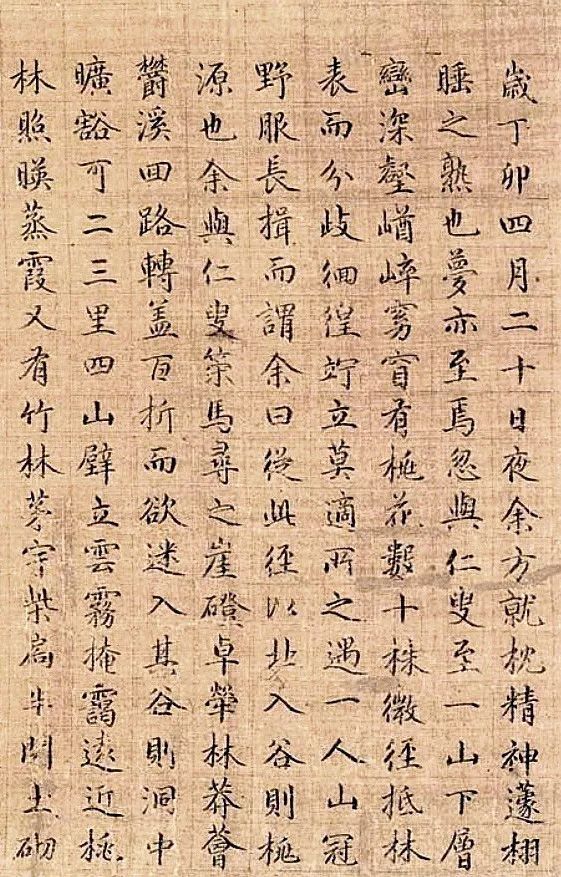 歲丁卯四月二十日夜余方就枕精神蘧栩
睡之熟也夢亦至焉忽與仁叟至一山下層
巒深壑崷崒窈窅有桃花數十株微徑抵林
表而分歧徊徨竚立莫適所之遇一人山冠
野服長揖而謂余曰從此徑以北入谷則桃
源也余與仁叟策馬尋之崖磴卓犖林莽薈
欝溪回路轉盖百折而欲迷入其谷則洞中
曠豁可二三里四山壁立雲霧掩靄遠近桃
林照暎蒸霞又有竹林茅宇柴扃半開土砌